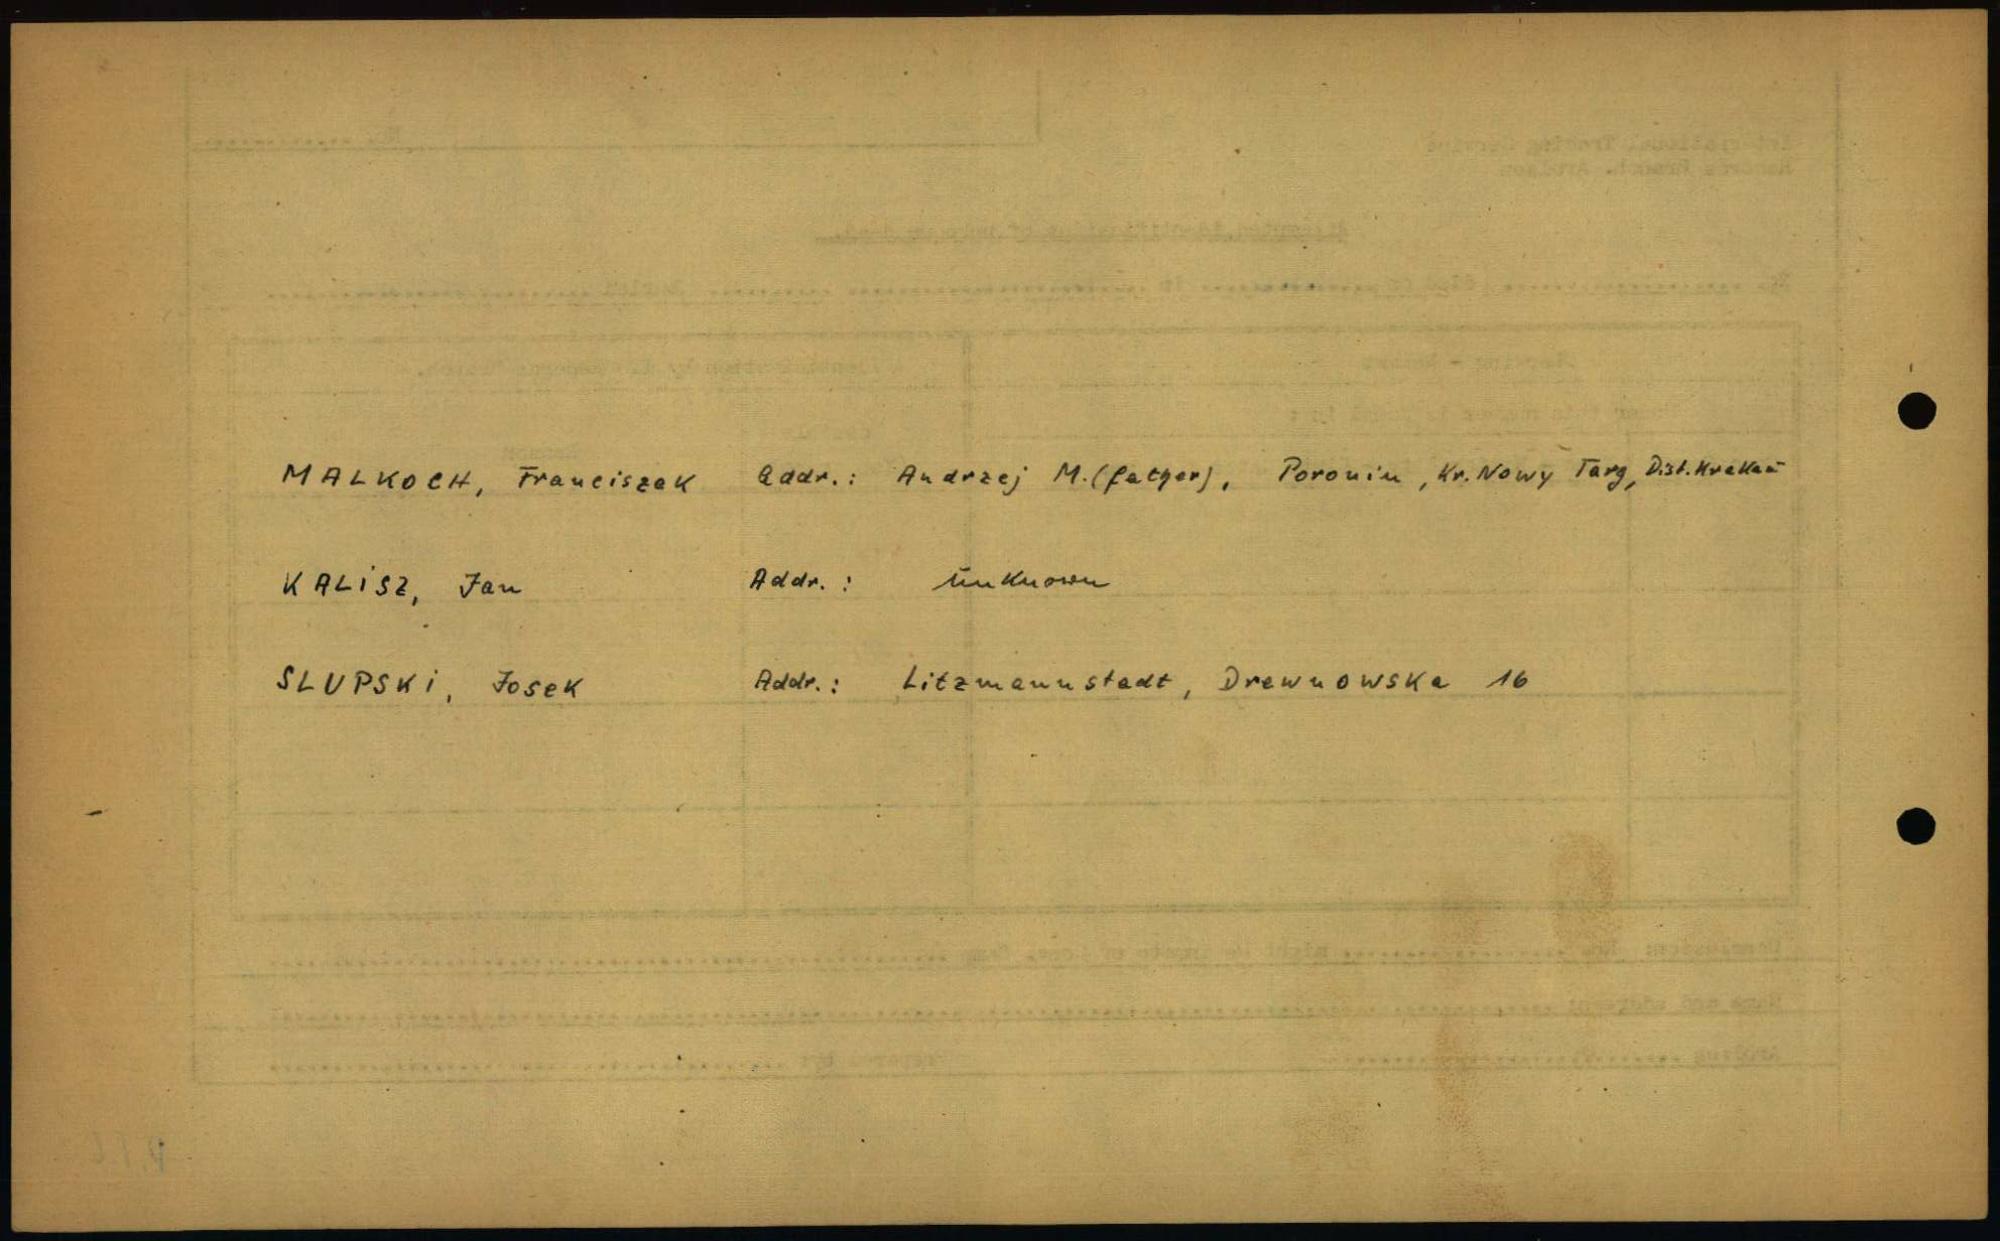 MALKOCH, Franciszek Addr.: Andrzej M. (father), Poronin, Kr. Nowy Targ, Dist. Krakau
KALiSZ, Jan Addr.: Unknown
SLUPSKi, Josek Addr.: Litzmannstadt, Drewnowska 16